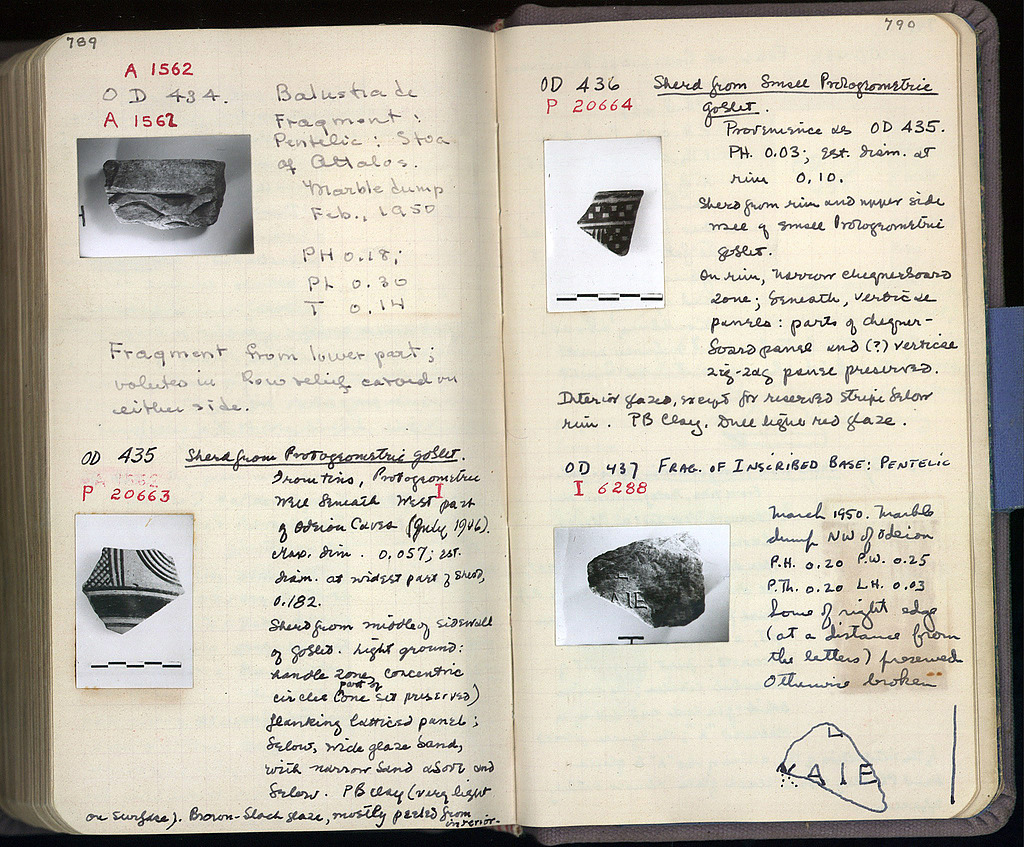 789
A 1562
OD 434.
A 1562
Balustrade
Fragment:
Pentelic: Stoa
of Attalos.
Marble dump
Feb., 1950
PH 0.18;
PL 0.30
T 0.14
Fragment from lower part;
volutes in low relief carved on
either side.
OD 435 Sherd from Protogeometric goblet.
A 1562
P 20663
From this, Protogeometric
Well beneath West part
I
of Odeion Cavea (July 1946).
Max. dim. 0.057; est.
diam. at widest part of sherd,
0.182.
Sherd from middle of sidewall
of goblet. Light ground:
handle zone, concentric
circles (one set preserved)
part of
flanking latticed panel;
below, wide glaze band,
with narrow band above and
below. PB clay (very light
on surface). Brown-black glaze, mostly peeled from
interior.
790
OD 436 Sherd from Small Protogeometric
P 20664 goblet.
Provenience as OD 435.
PH. 0.03; est. diam. at
rim 0.10.
Sherd from rim and upper side
wall of small Protogeometric
goblet.
On rim, narrow chequerboard
zone; beneath, vertical
panels: parts of chequer-
board panel and (?) vertical
zig-zag panel preserved.
Interior glazed, except for reserved stripe below
rim. PB Clay. Dull light red glaze.
OD 437 FRAG. OF INSCRIBED BASE: PENTELIC
I 6288
March 1950. Marble
dump NW of Odeion
P.H. 0.20 P.W. 0.25
P.Th. 0.20 L.H. 0.03
Some of right edge
(at a distance from
the letters) preserved
Otherwise broken
AIE
AIE